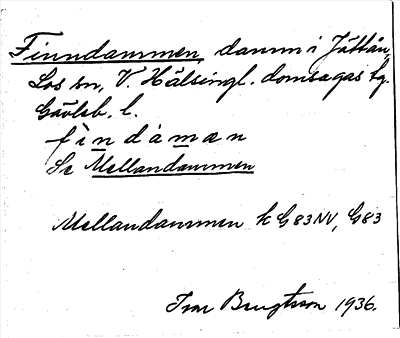 Finndammen, damm i Jättån,
Los sn, V. Hälsingl. domsagas tg.
Gävleb. l.
fìndámæn
Se Mellandammen
Mellandammen k G83NV, G83
Ivar Bengtsson 1936.